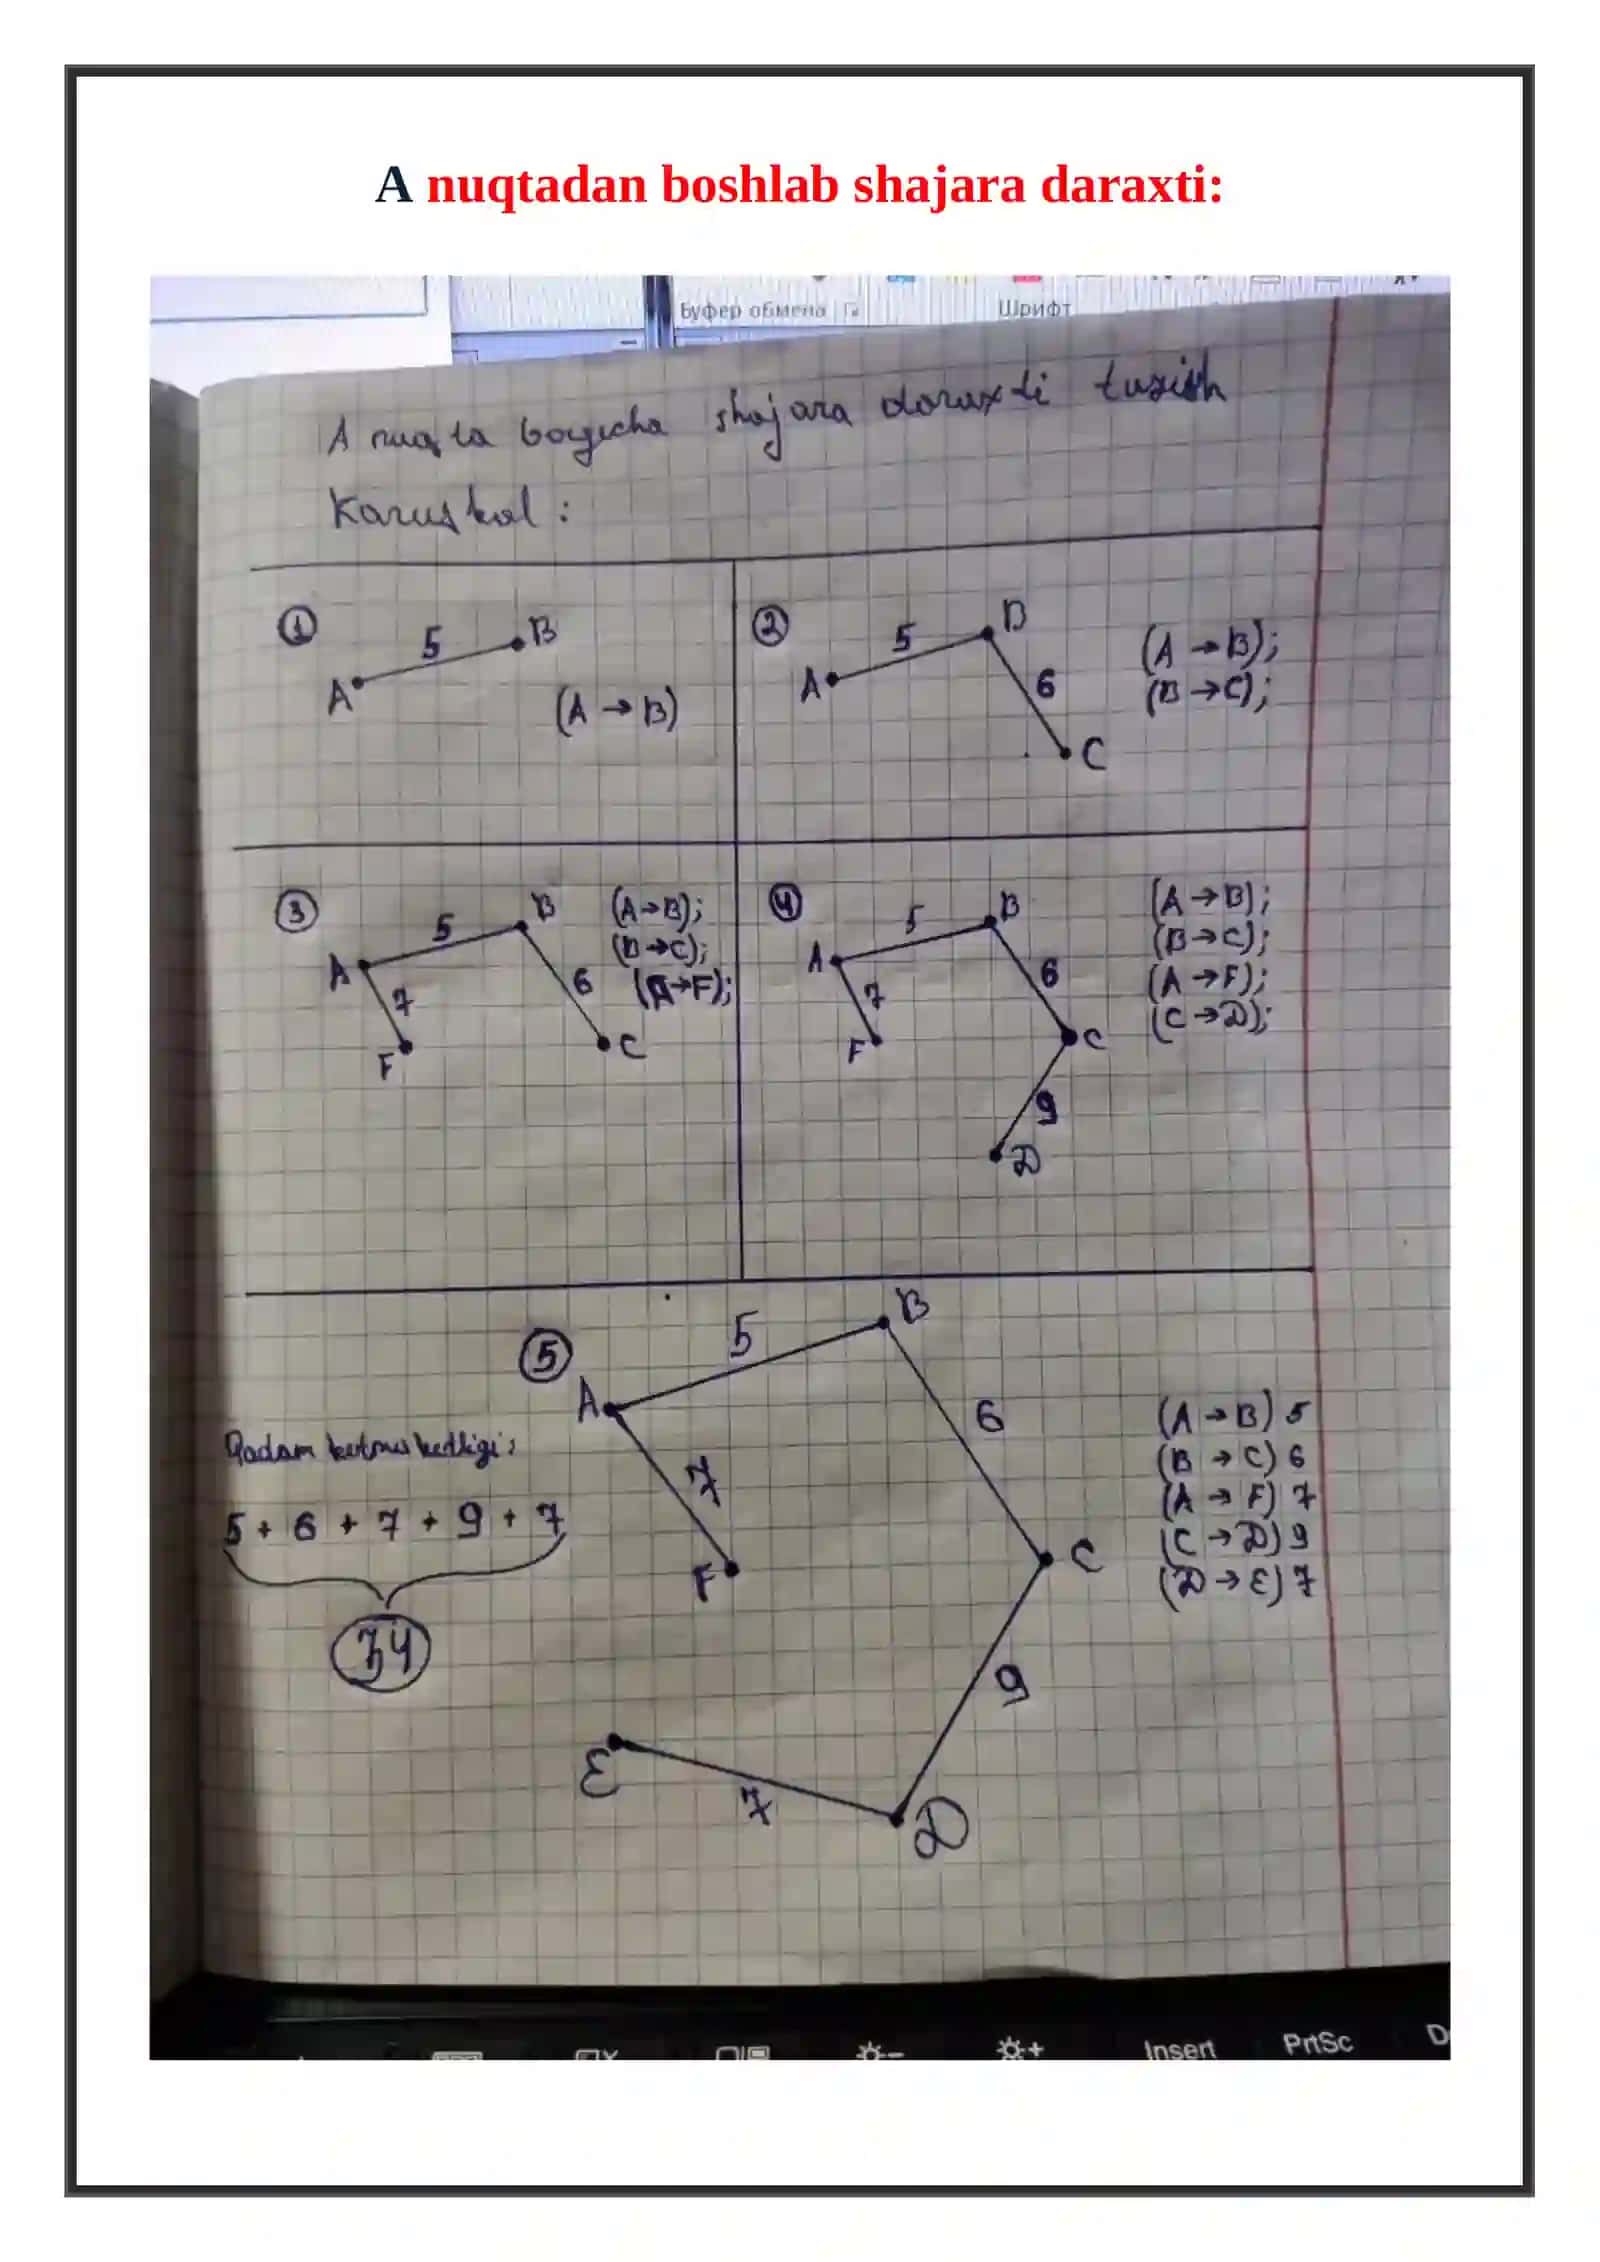 A nuqtadan boshlab shajara daraxti:
Буфер обмена
Шрифт
A nuqta boyicha shajara daraxti tuzish
Karuskal:
1
5
B
A
(A → B)
2
B
5
A
6
C
(A → B);
(B → C);
3
B
5
A
7
6
F
C
(A → B);
(B → C);
(A → F);
4
B
5
A
6
7
F
C
9
D
(A → B);
(B → C);
(A → F);
(C → D);
5
B
5
A
6
7
F
C
9
E
7
D
(A → B) 5
(B → C) 6
(A → F) 7
(C → D) 9
(D → E) 7
Qadam
5 + 6 + 7 + 9 + 7
34
Insert
PrtSc
D